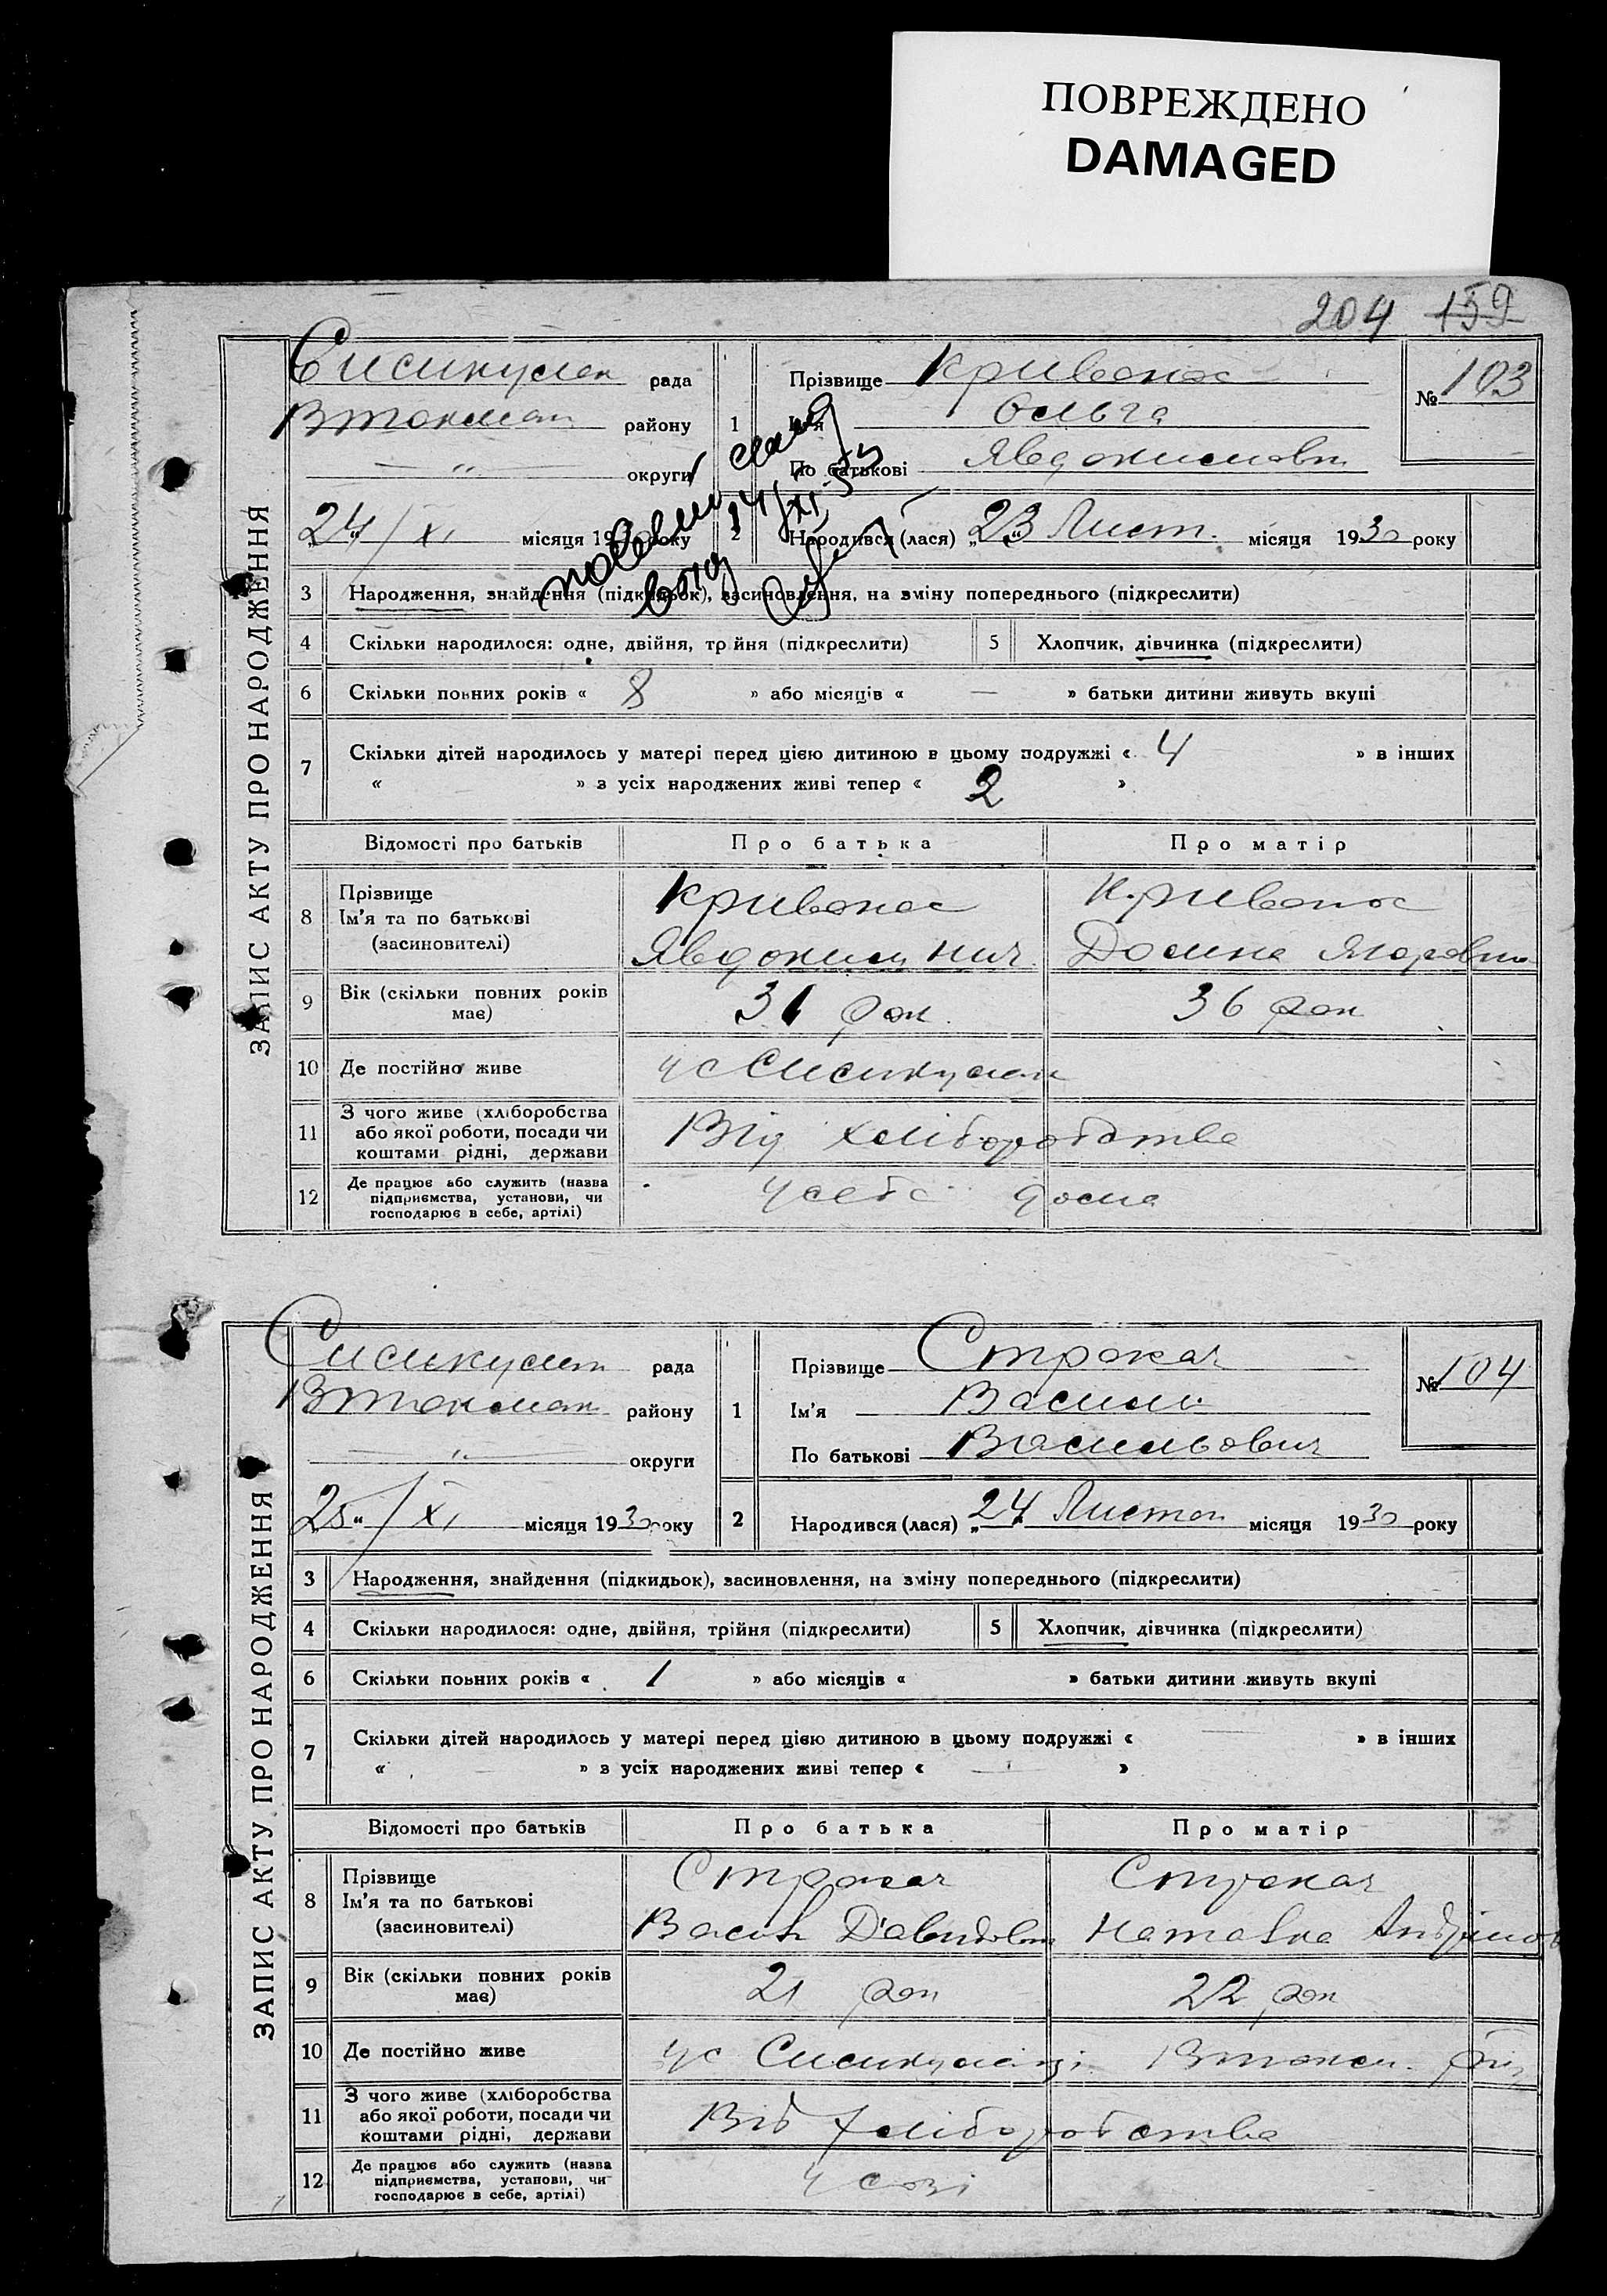 ПОВРЕЖДЕНО
DAMAGED
204 159
ЗАПИС АКТУ ПРО НАРОДЖЕННЯ
рада
Втокмак району
— " — округи
24/XI місяця 1930 року
1 Прізвище Кривонос
Ім'я Ольга
По батькові
№ 103
2 Народився (лася) „23" Лист. місяця 1930 року
3 Народження, знайдення (підкидьок), засиновлення, на зміну попереднього (підкреслити)
4 Скільки народилося: одне, двійня, трійня (підкреслити) 5 Хлопчик, дівчинка (підкреслити)
6 Скільки повних років « 8 » або місяців « — » батьки дитини живуть вкупі
7 Скільки дітей народилось у матері перед цією дитиною в цьому подружжі « 4 » в інших
« » з усіх народжених живі тепер « 2 »
Відомості про батьків Про батька Про матір
8 Прізвище Кривонос Кривонос
Ім'я та по батькові
(засиновителі)
9 Вік (скільки повних років має) 31 рок 36 рок
10 Де постійно живе ус
11 З чого живе (хліборобства
або якої роботи, посади чи
коштами рідні, держави
Від хліборобства
12 Де працює або служить (назва
підприємства, установи, чи
господарює в себе, артілі)
дома
ЗАПИС АКТУ ПРО НАРОДЖЕННЯ
рада
Втокмак району
— " — округи
25/XI місяця 1930 року
1 Прізвище Строкач
Ім'я Василь
По батькові Васильович
№ 104
2 Народився (лася) „24" Листоп місяця 1930 року
3 Народження, знайдення (підкидьок), засиновлення, на зміну попереднього (підкреслити)
4 Скільки народилося: одне, двійня, трійня (підкреслити) 5 Хлопчик, дівчинка (підкреслити)
6 Скільки повних років « 1 » або місяців « » батьки дитини живуть вкупі
7 Скільки дітей народилось у матері перед цією дитиною в цьому подружжі « — » в інших
« — » з усіх народжених живі тепер « — »
Відомості про батьків Про батька Про матір
8 Прізвище Строкач Строкач
Ім'я та по батькові
(засиновителі)
9 Вік (скільки повних років має) 21 рок 22 рок
10 Де постійно живе ус
11 З чого живе (хліборобства
або якої роботи, посади чи
коштами рідні, держави
Від хліборобства
12 Де працює або служить (назва
підприємства, установи, чи
господарює в себе, артілі)